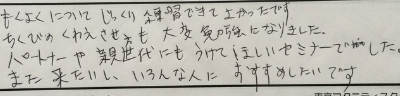 もくよくについて じっくり 練習できてよかったです
ちくびのくわえさせ方も大変勉強になりました。
パートナーや親世代にもうけてほしいセミナーでした。
また来たいし、いろんな人におすすめしたいです